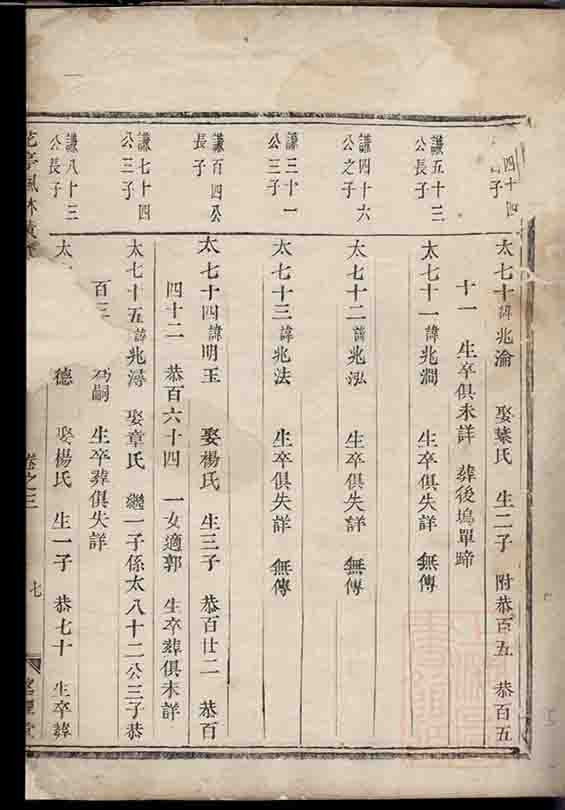 四十四
子
太七十諱兆淪 娶葉氏 生二子 附恭百五 恭百五
十一 生卒俱未詳 葬後塢單蹄
謙五十三
公長子
太七十一諱兆澗 生卒俱失詳 無傳
謙四十六
公之子
太七十二諱兆泓 生卒俱失詳 無傳
謙三十一
公三子
太七十三諱兆法 生卒俱失詳 無傳
謙百四公
長子
太七十四諱明玉 娶楊氏 生三子 恭百廿二 恭百
四十二 恭百六十四 一女適郭 生卒葬俱未詳
謙七十四
公三子
太七十五諱兆潯 娶章氏 繼一子係太八十二公三子恭
百三 為嗣 生卒葬俱失詳
謙八十三
公長子
太 德 娶楊氏 生一子 恭七十 生卒葬
卷之三 七